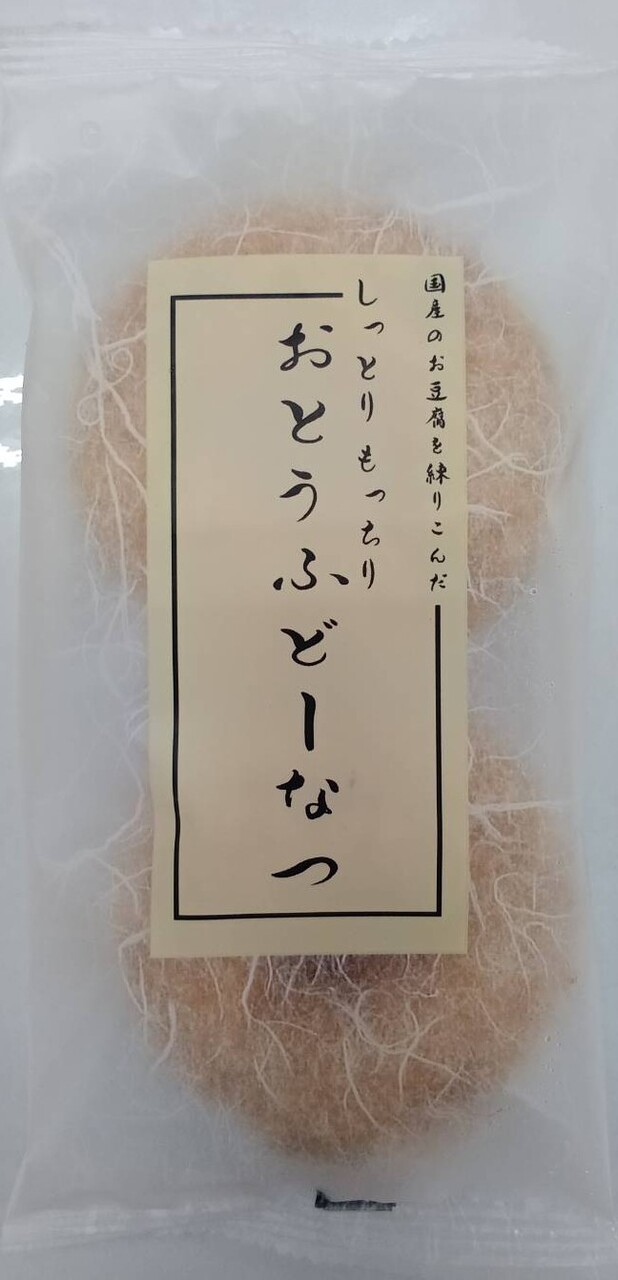 国産のお豆腐を練りこんだ
しっとりもっちり
おとうふどーなつ